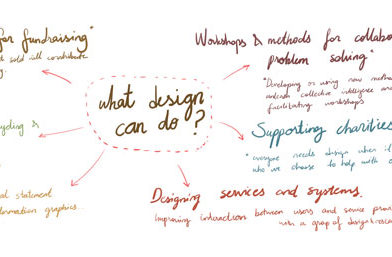 for fundraising"
sold will contribute
what design
can do?
Workshops & methods for collabo
problem solving"
"Developing or using new metho
collective intelligence an
facilitating workshops
Supporting charities
"everyone needs design when it
who we choose to help with o
Designing services and systems.
improving interaction between users and service prov
with a group of design
&
statement
graphics...